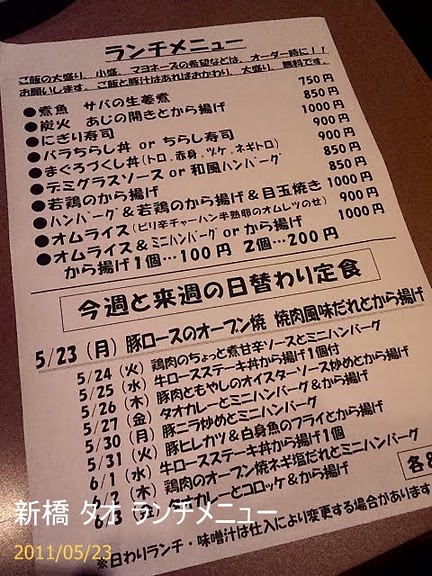 ランチメニュー
ご飯の大盛り、小盛、マヨネーズの希望などは、オーダー時に!!
お願いします。ご飯と豚汁はあればおかわり、大盛り、無料です。
●煮魚 サバの生姜煮 750円
●炭火 あじの開きとから揚げ 850円
●にぎり寿司 1000円
●バラちらし丼 or ちらし寿司 900円
●まぐろづくし丼(トロ、赤身、ヅケ、ネギトロ) 1000円
●デミグラスソース or 和風ハンバーグ 900円
●若鶏のから揚げ 850円
●ハンバーグ&若鶏のから揚げ&目玉焼き 1000円
●オムライス(ピリ辛チャーハン半熟卵のオムレツのせ) 900円
●オムライス&ミニハンバーグ or から揚げ 1000円
から揚げ1個…100円 2個…200円
今週と来週の日替わり定食
5/23(月)豚ロースのオーブン焼 焼肉風味だれとから揚げ
5/24(火)鶏肉のちょっと煮甘辛ソースとミニハンバーグ
5/25(水)牛ロースステーキ丼から揚げ1個付
5/26(木)豚肉ともやしのオイスターソース炒めとから揚げ
5/27(金)タオカレーとミニハンバーグ&から揚げ
5/30(月)豚ニラ炒めとミニハンバーグ
5/31(火)豚ヒレカツ&白身魚のフライとから揚げ
6/1(水)牛ロースステーキ丼から揚げ1個
6/2(木)鶏肉のオーブン焼ネギ塩だれとミニハンバーグ
6/3 タオカレーとコロッケ&から揚げ 各8
※日わりランチ・味噌汁は仕入により変更する場合があります
新橋 タオ ランチメニュー
2011/05/23